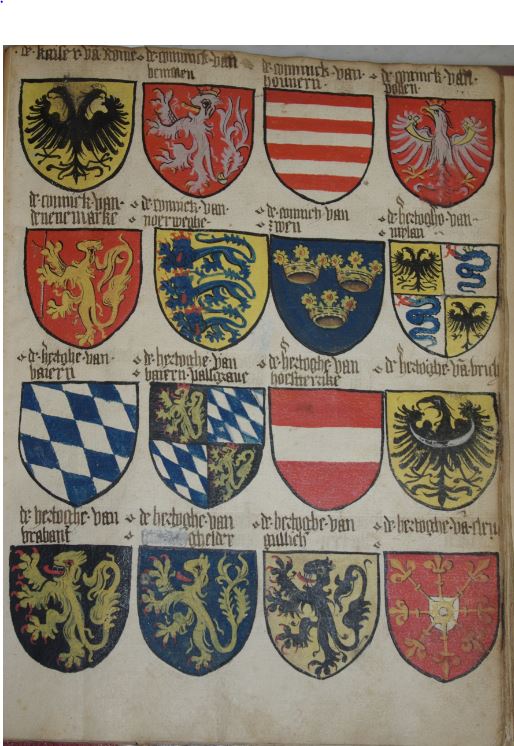 de keiser va Rome
de conninck van
bemmen
de conninck van
honnern
de coninck van
pollen
de coninck van
denenemarke
de coninck van
noerweghe
de conninch van
zwen
de hertoghe van
milan
de hertoghe van
baiern
de hertoghe van
baiern pallsgrave
de hertoghe van
oesterrike
de hertoghe va
de hertoghe van
brabant
de hertoghe van
ghelder
de hertoghe van
gullich
de hertoghe va